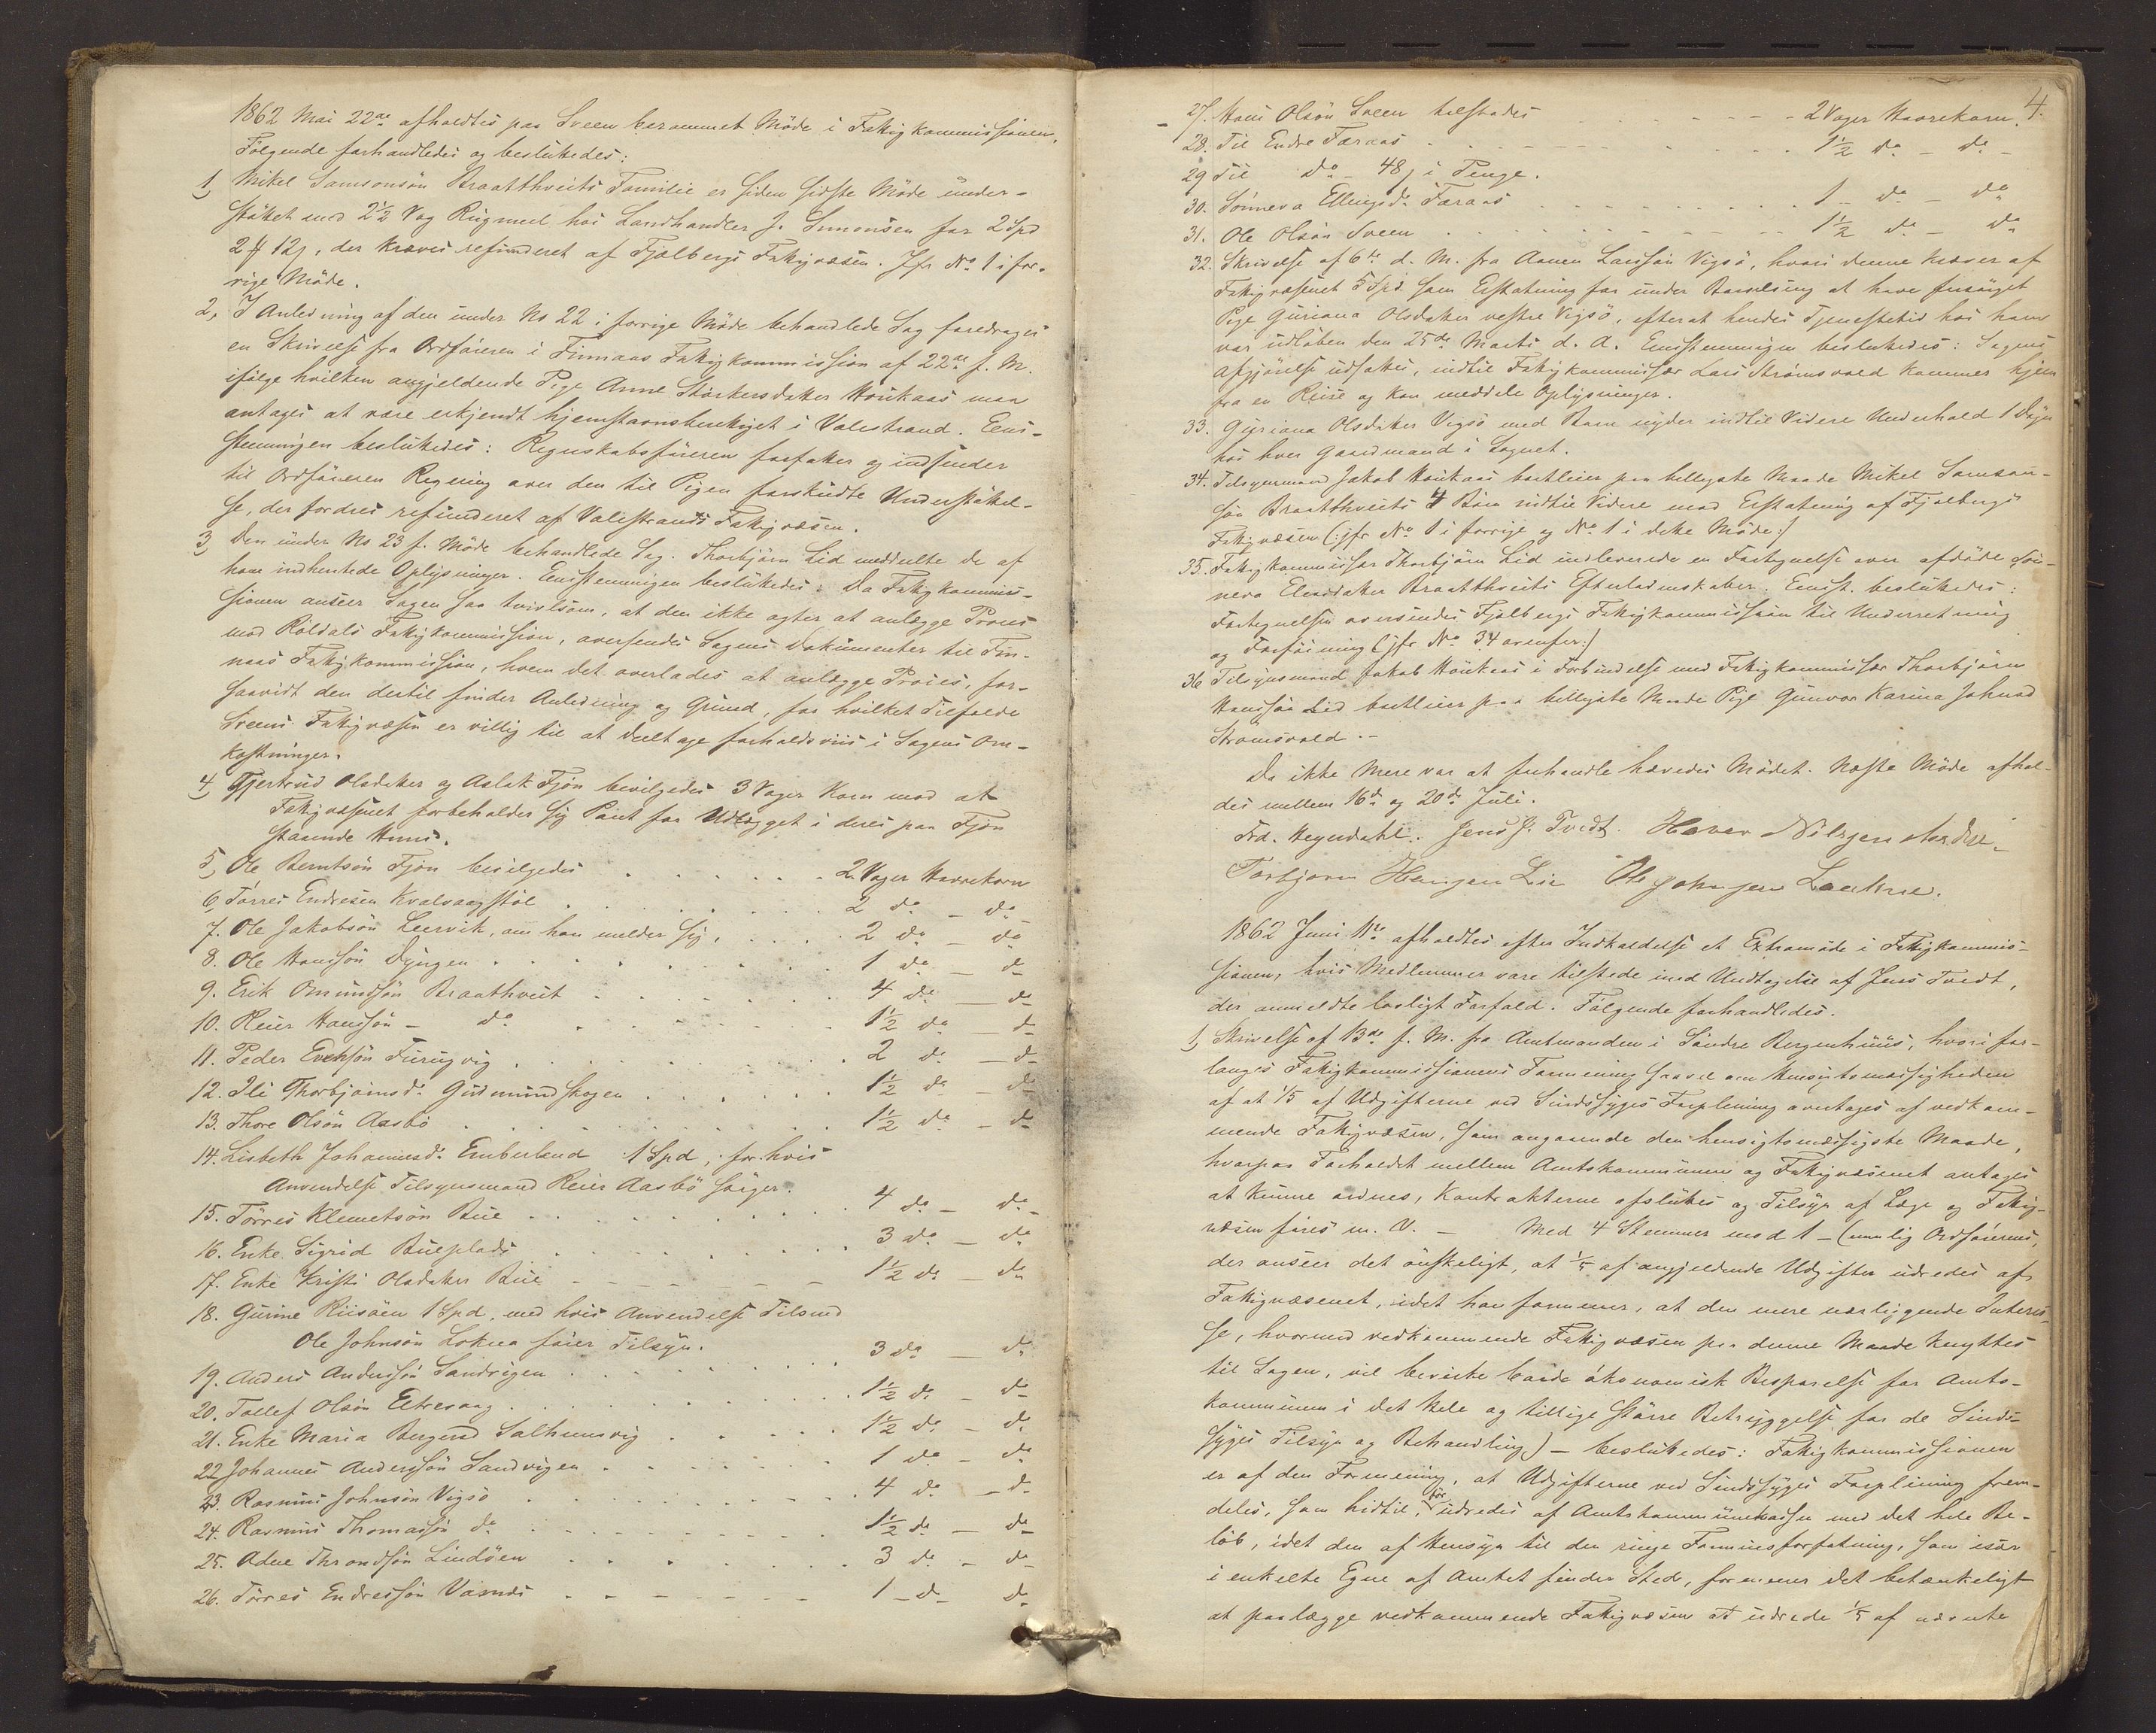 1862 Mai 22de afholdtes paa Sveen berammet Möde i Fattigkommissionen.
Følgende forhandledes og besluttedes:
1, Mikel Samsonsön Braatthveits Familie er siden sidste Möde under-
støttet med 2½ Vog Rugmeel hos Landhandler J. Simonsen for 2 Spd
2 ₰ 12 s, der kræves refunderet af Fjælbergs Fattigvæsen. Jfr No 1 i for-
rige Möde.
2, I Anledning af den under No 22 i forrige Möde behandlede Sag foredroges
en Skrivelse fra Ordföreren i Finnaas Fattigkommission af 22de f. M.
ifölge hvilken angjeldende Pige Anne Størkersdatter Houkaas maa
antages at være erkjendt hjemstavnsberettiget i Valestrand. Een-
stemmigen besluttedes: Regnskabsföreren forfatter og indsender
til Ordföreren Regning over den til Pigen forskudte Understøttel-
se, der fordres refunderet af Valestrands Fattigvæsen.
3, Den under No 23 f. Möde behandlede Sag. Thorbjörn Lid meddeelte de af
ham indhentede Oplysninger. Eenstemmigen besluttedes: Da Fattigkommis-
sionen anseer Sagen saa tvivlsom, at den ikke agter at anlægge Proces
mod Röldals Fattigkommission, oversendes Sagens Dokumenter til Fin-
naas Fattigkommission, hvem det overlades at anlægge Proces, for-
saavidt den dertil finder Anledning og Grund, for hvilket Tilfælde
Sveens Fattigvæsen er villig til at deeltage forholdsviis i Sagens Om-
kostninger.
4, Gjertrud Olsdatter og Aslak Fjøn bevilgedes 3 Voger Korn mod at
Fattigvæsenet forbeholder sig Pant for Udlægget i deres paa Fjøn
staaende Huus.
5, Ole Berntsön Fjön bevilgedes . . . . . . 2 Voger Havrekorn
6, Törres Endresen Kvalvaagstöl . . . . . . 2 do – do
7. Ole Jakobsön Leervik, om han melder sig, . . . . 2 do – do
8. Ole Hanssön Dyngen . . . . . . . . 1 do – do
9. Erik Omundsön Braathveit . . . . . . 4 do – do
10. Reier Hanssön – do . . . . . . 1½ do – do
11. Peder Evensön Furugvig . . . . . . 2 do – do
12. Ili Thorbjörnsdr Gudmundskogen . . . . . . 1½ do – do
13. Thore Olsön Aasbö . . . . . . . 1½ do – do
14. Lisbeth Johannesdr Emberland 1 Spd, for hvis
Anvendelse Tilsynsmand Reier Aasbö sørger.
15. Törres Klemetsön Bue . . . . . . . 4 do – do
16. Enke Sigrid Bueplads . . . . . . . 3 do – do
17. Enke Kristi Olsdatter Bue – – – – – – 1½ do – do
18. Gurine Riisöen 1 Spd, med hvis Anvendelse Tilsmd
Ole Johnsön Lokna förer Tilsyn.
19. Anders Anderssön Sandvigen . . . . . . 3 do – do
20. Tollef Olsön Eltrevaag . . . . . . . 1½ do – do
21. Enke Maria Bergersd Salhumsvig . . . . . 1½ do – do
22. Johannes Anderssön Sandvigen . . . . . . 1 do – do
23. Rasmus Johnsön Vigsö . . . . . . . 4 do – do
24. Rasmus Thomassön do . . . . . . . 1½ do – do
25. Adne Throndsön Lindöen . . . . . . . 3 do – do
26. Törres Endressön Vasnes – – – – – – 1 do do
4.
27. Hans Olsön Sveen tilstodes . . . . . . 2 Voger Havrekorn.
28. Til Endre Færaas . . . . . . . 1½ do – do –
29 Til do – 48 s i Penge.
30. Sönneva Ellingsdr Færaas . . . . . . 1 – do – do
31. Ole Olsön Sveen . . . . . . . 1½ do – do
32. Skrivelse af 6te d. M. fra Aanen Larssön Vigsö, hvori denne kræver af
Fattigvæsenet 5 Spd som Erstatning for under Barselseng at have forsørget
Pige Guriana Olsdatter vestre Vigsö, efterat hendes Tjenestetid hos ham
var udløben den 25de Marts d. A. Eenstemmigen besluttedes: Sagens
Afgjörelse udsattes, indtil Fattigkommissær Lars Strömsvold kommer hjem
fra en Reise og kan meddele Oplysninger.
33. Guriana Olsdatter Vigsö med Barn nyder indtil Videre Underhold 1 Døgn
hos hver Gaardmand i Sognet.
34. Tilsynsmand Jakob Houkaas bortleier paa billigste Maade Mikel Samson-
sön Braatthveits 4 Börn indtil Videre mod Erstatning af Fjælbergs
Fattigvæsen (: jfr No 1 i forrige og No 1 i dette Möde:)
35. Fattigkommissær Thorbjörn Lid indleverede en Fortegnelse over afdöde Sön-
neva Elnsdatter Braatthveits Efterladenskaber. Eenst. besluttedes:
Fortegnelsen oversendes Fjælbergs Fattigkommission til Underretning
og Forföining (jfr No 34 ovenfor:)
36 Tilsynsmand Jakob Houkaas i Forbindelse med Fattigkommissær Thorbjörn
Hanssön Lid bortleier paa billigste Maade Pige Gunvor Karina Johnsd
Strömsvold. –
Da ikke Mere var at forhandle hævedes Mödet. Næste Möde afhol-
des mellem 16de og 20de Juli.
Frd. Heyerdahl. Jens J. Tvedt. Haver Nilsgen
Torbjørn Hansgen Lie Ole Johnsgen
1862 Juni 11te afholdtes efter Indkaldelse et Extramöde i Fattigkommis-
sionen, hvis Medlemmer vare tilstede med Undtagelse af Jens Tvedt,
der anmeldte lovligt Forfald. Fölgende forhandledes.
1, Skrivelse af 13de f. M. fra Amtmanden i Söndre Bergenhuus, hvori for-
langes Fattigkommissionens Formening saavel om Hensigtsmæssigheden
af at 1/5 af Udgifterne ved Sindssyges Forpleining overtages af vedkom-
mende Fattigvæsen, som angaaende den hensigtsmæssigste Maade,
hvorpaa Forholdet mellem Amtskommunen og Fattigvæsenet antages
at kunne ordnes, Kontrakterne afsluttes og Tilsyn af Læge og Fattig-
væsen föres m. V. – Med 4 Stemmer mod 1 – (nemlig Ordförerens,
der anseer det önskeligt, at 1/5 af angjeldende Udgifter udredes af
Fattigvæsenet, idet han formener, at den mere nærliggende Interes-
se, hvormed vedkommende Fattigvæsen paa denne Maade knyttes
til Sagen, vil bevirke baade ökonomisk Besparelse for Amts-
kommunen i det Hele og tillige större Betryggelse for de Sinds-
syges Tilsyn og Behandling) – besluttedes: Fattigkommissionen
er af den Formening, at Udgifterne ved Sindssyges Forpleining frem-
deles, som hidtil, bör udredes af Amtskommunekassen med det hele Be-
löb, idet den af Hensyn til den ringe Formuesforfatning, som især
i enkelte Egne af Amtet finder Sted, formener det betænkeligt
at paalægge vedkommende Fattigvæsen at udrede 1/5 af nævnte